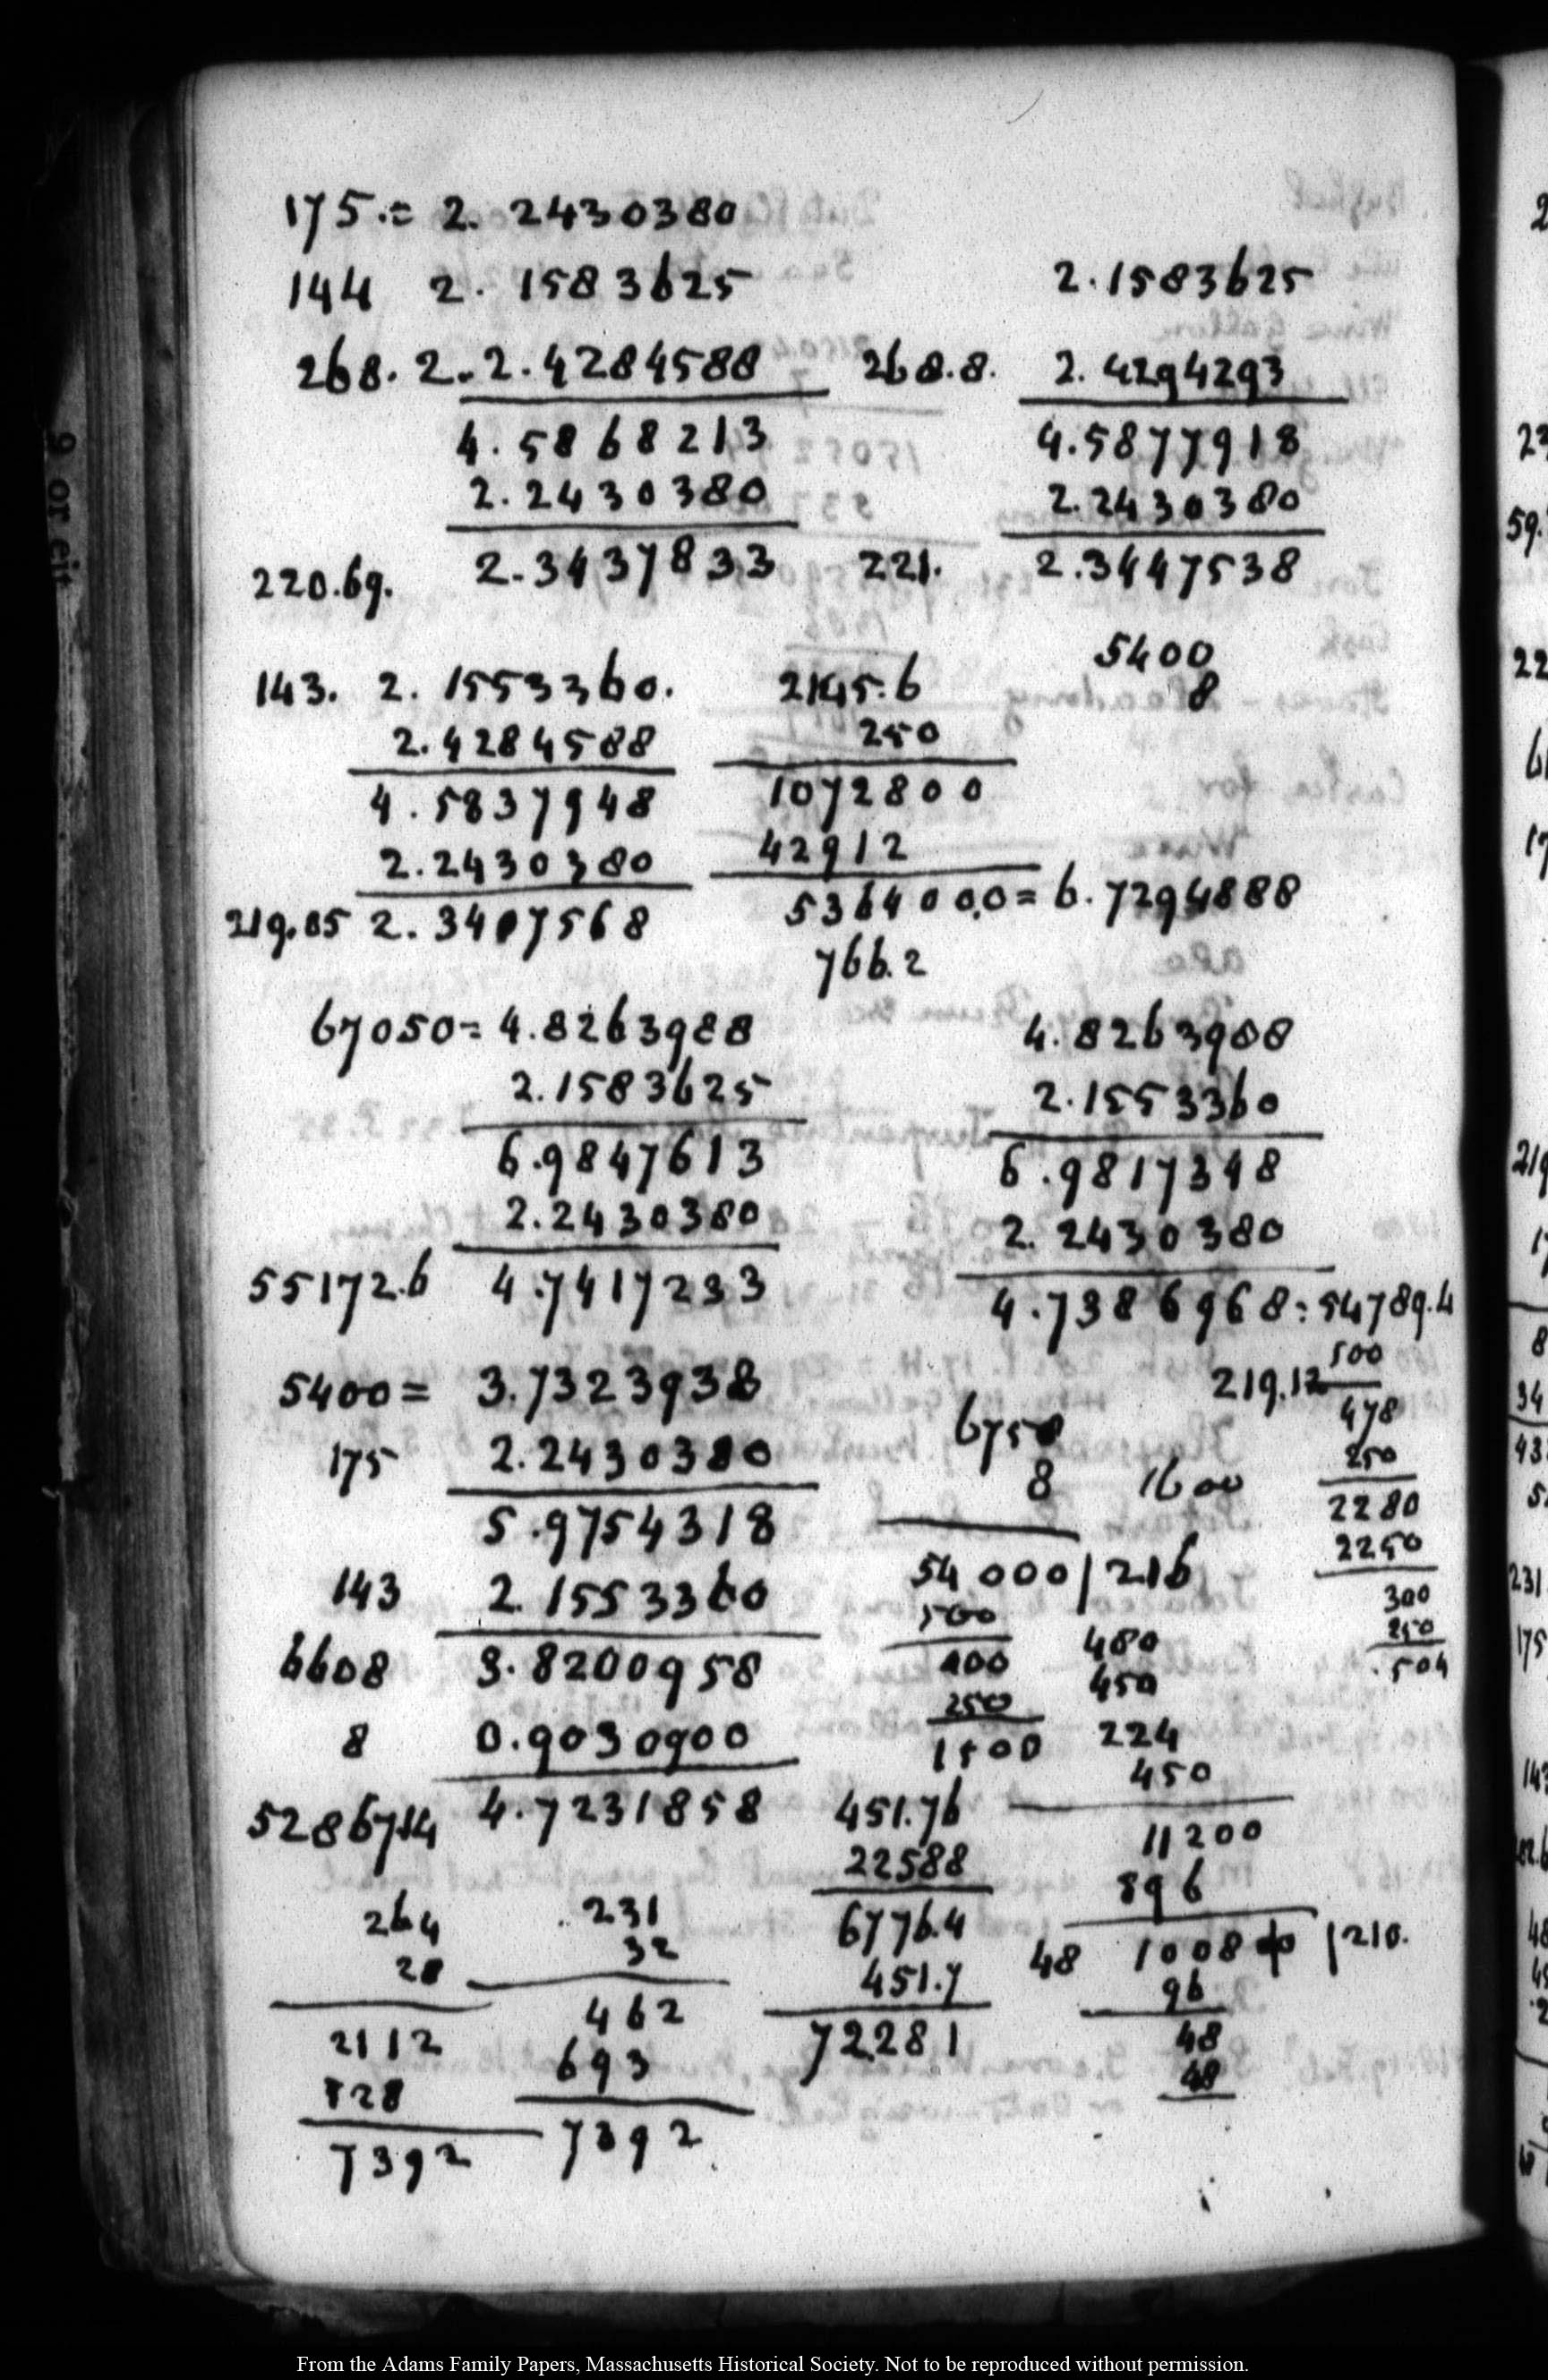 175.= 2. 2430380
144 2. 1583625 2.1583625
268. 2. 2.4284588 268.8. 2. 4294293
4. 5868213 4.5877918
2. 2430380 2. 2430380
220.69. 2.3437833 221. 2.3447538
5400
8
143. 2. 1553360. 2145.6
2.4284588 250
4. 5837948 1072800
2.2430380 42912
219.05 2. 3407568 5364000,0 = 6. 7294888
766.2
67050= 4.8263988 4. 8263988
2.1583625 2.1553360
6.9847613 6.9817348
2.2430380 2. 2430380
55172.6 4.7417233 4.7386968: 54789.4
500
5400 = 3.7323938 219.12
478
175 2.2430380 6750 250
8 1600 2280
5.9754318 2250
54000 | 216
143 2. 1553360 500 300
480 250
6608 3. 8200958 400 450 .504
250
8 0.9030900 1500 224
450
52867.14 4.7231858 451.76
11200
22588
896
264 .231 6776.4
28 32 48 10080 | 210.
451.7
96
2112 462 72281 48
528 693 48
7392 7392
9 or cit
From the Adams Family Papers, Massachusetts Historical Society. Not to be reproduced without permission.